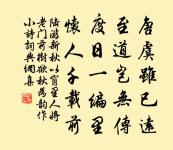 唐虞雖已遠
至道豈無傳
度日一編里
懷人千載前
陸游新秋以窗里人將
老門前樹欲秋為韻作
小詩詞典網集